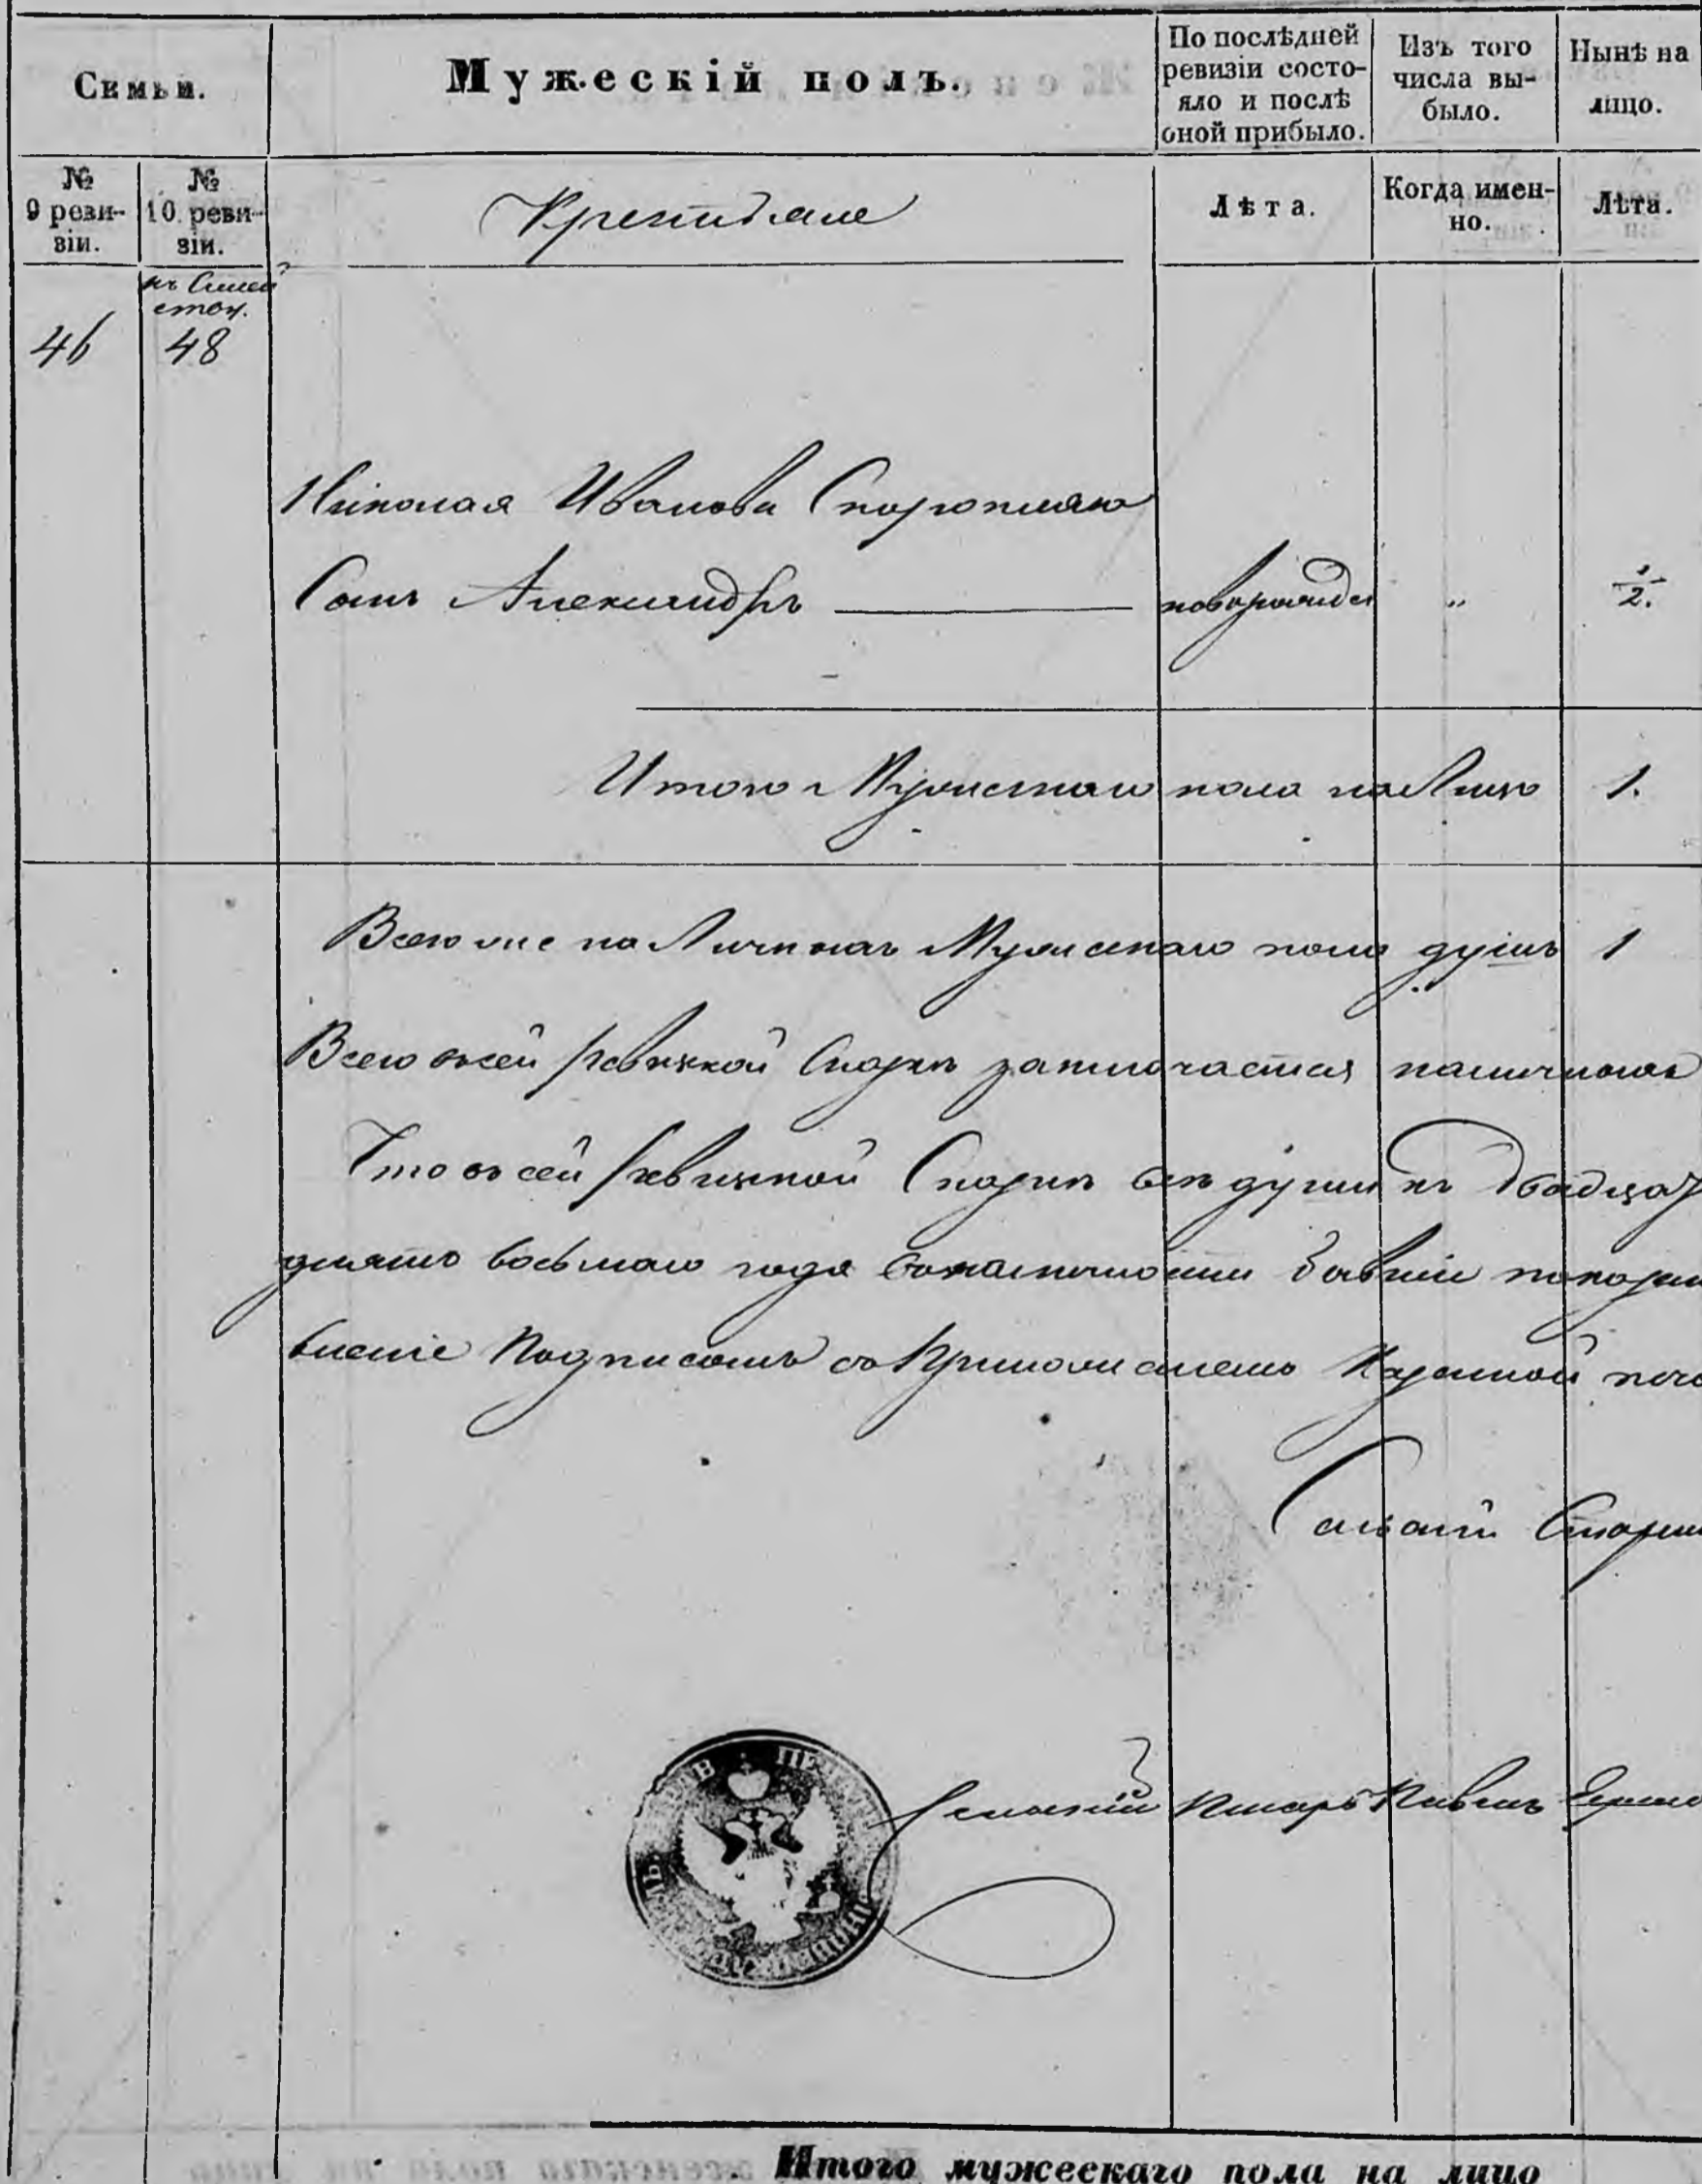 Семьи.
Мужескій полъ.
По послѣдней ревизіи состояло и послѣ оной прибыло.
Изъ того числа выбыло.
Нынѣ на лицо.
№ 9 ревизіи.
№ 10 ревизіи.
Крестьяне
Лѣта.
Когда именно.
Лѣта.
къ Семей
46 48
Николая Иванова
Сынъ Александръ новорожден „ 1/2.
Итого Мужескаго пола на Лицо 1.
Всего же на Личных Мужескаго пола душъ 1
Всего въ сей ревизкой Скаске заключается наличных
Что в сей ревизкой Скаске все души къ двадцат
восьмаго года бывшие
Подписомъ съ приложениемъ Казенной печа
Сельский Старши
Сельский Писарь Павелъ
ПЕЧ
Итого мужескаго пола на лицо